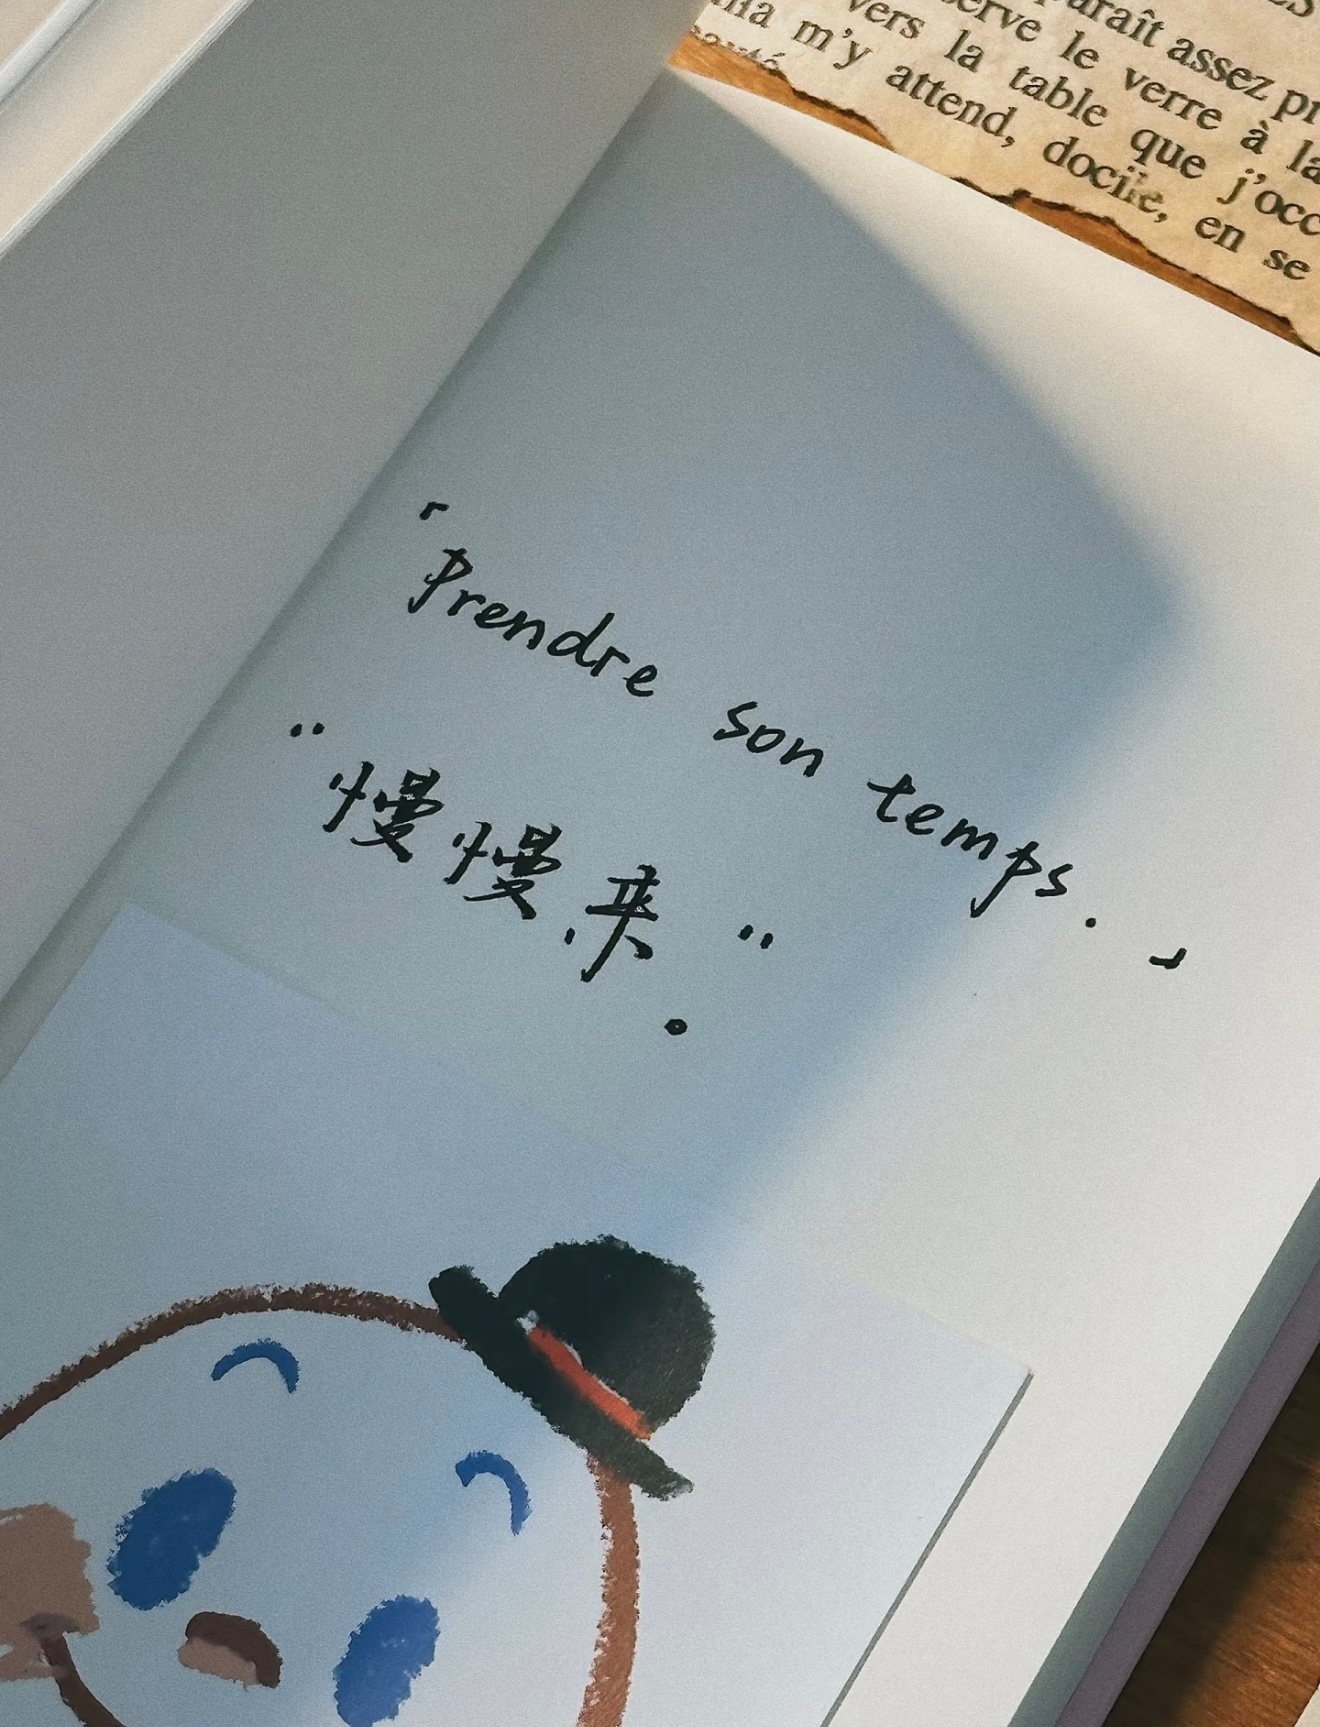 ES
paraît assez pr
serve le verre à la
vers la table que j'occ
m'y attend, docile, en se
「Prendre son temps.」
"慢慢来。"